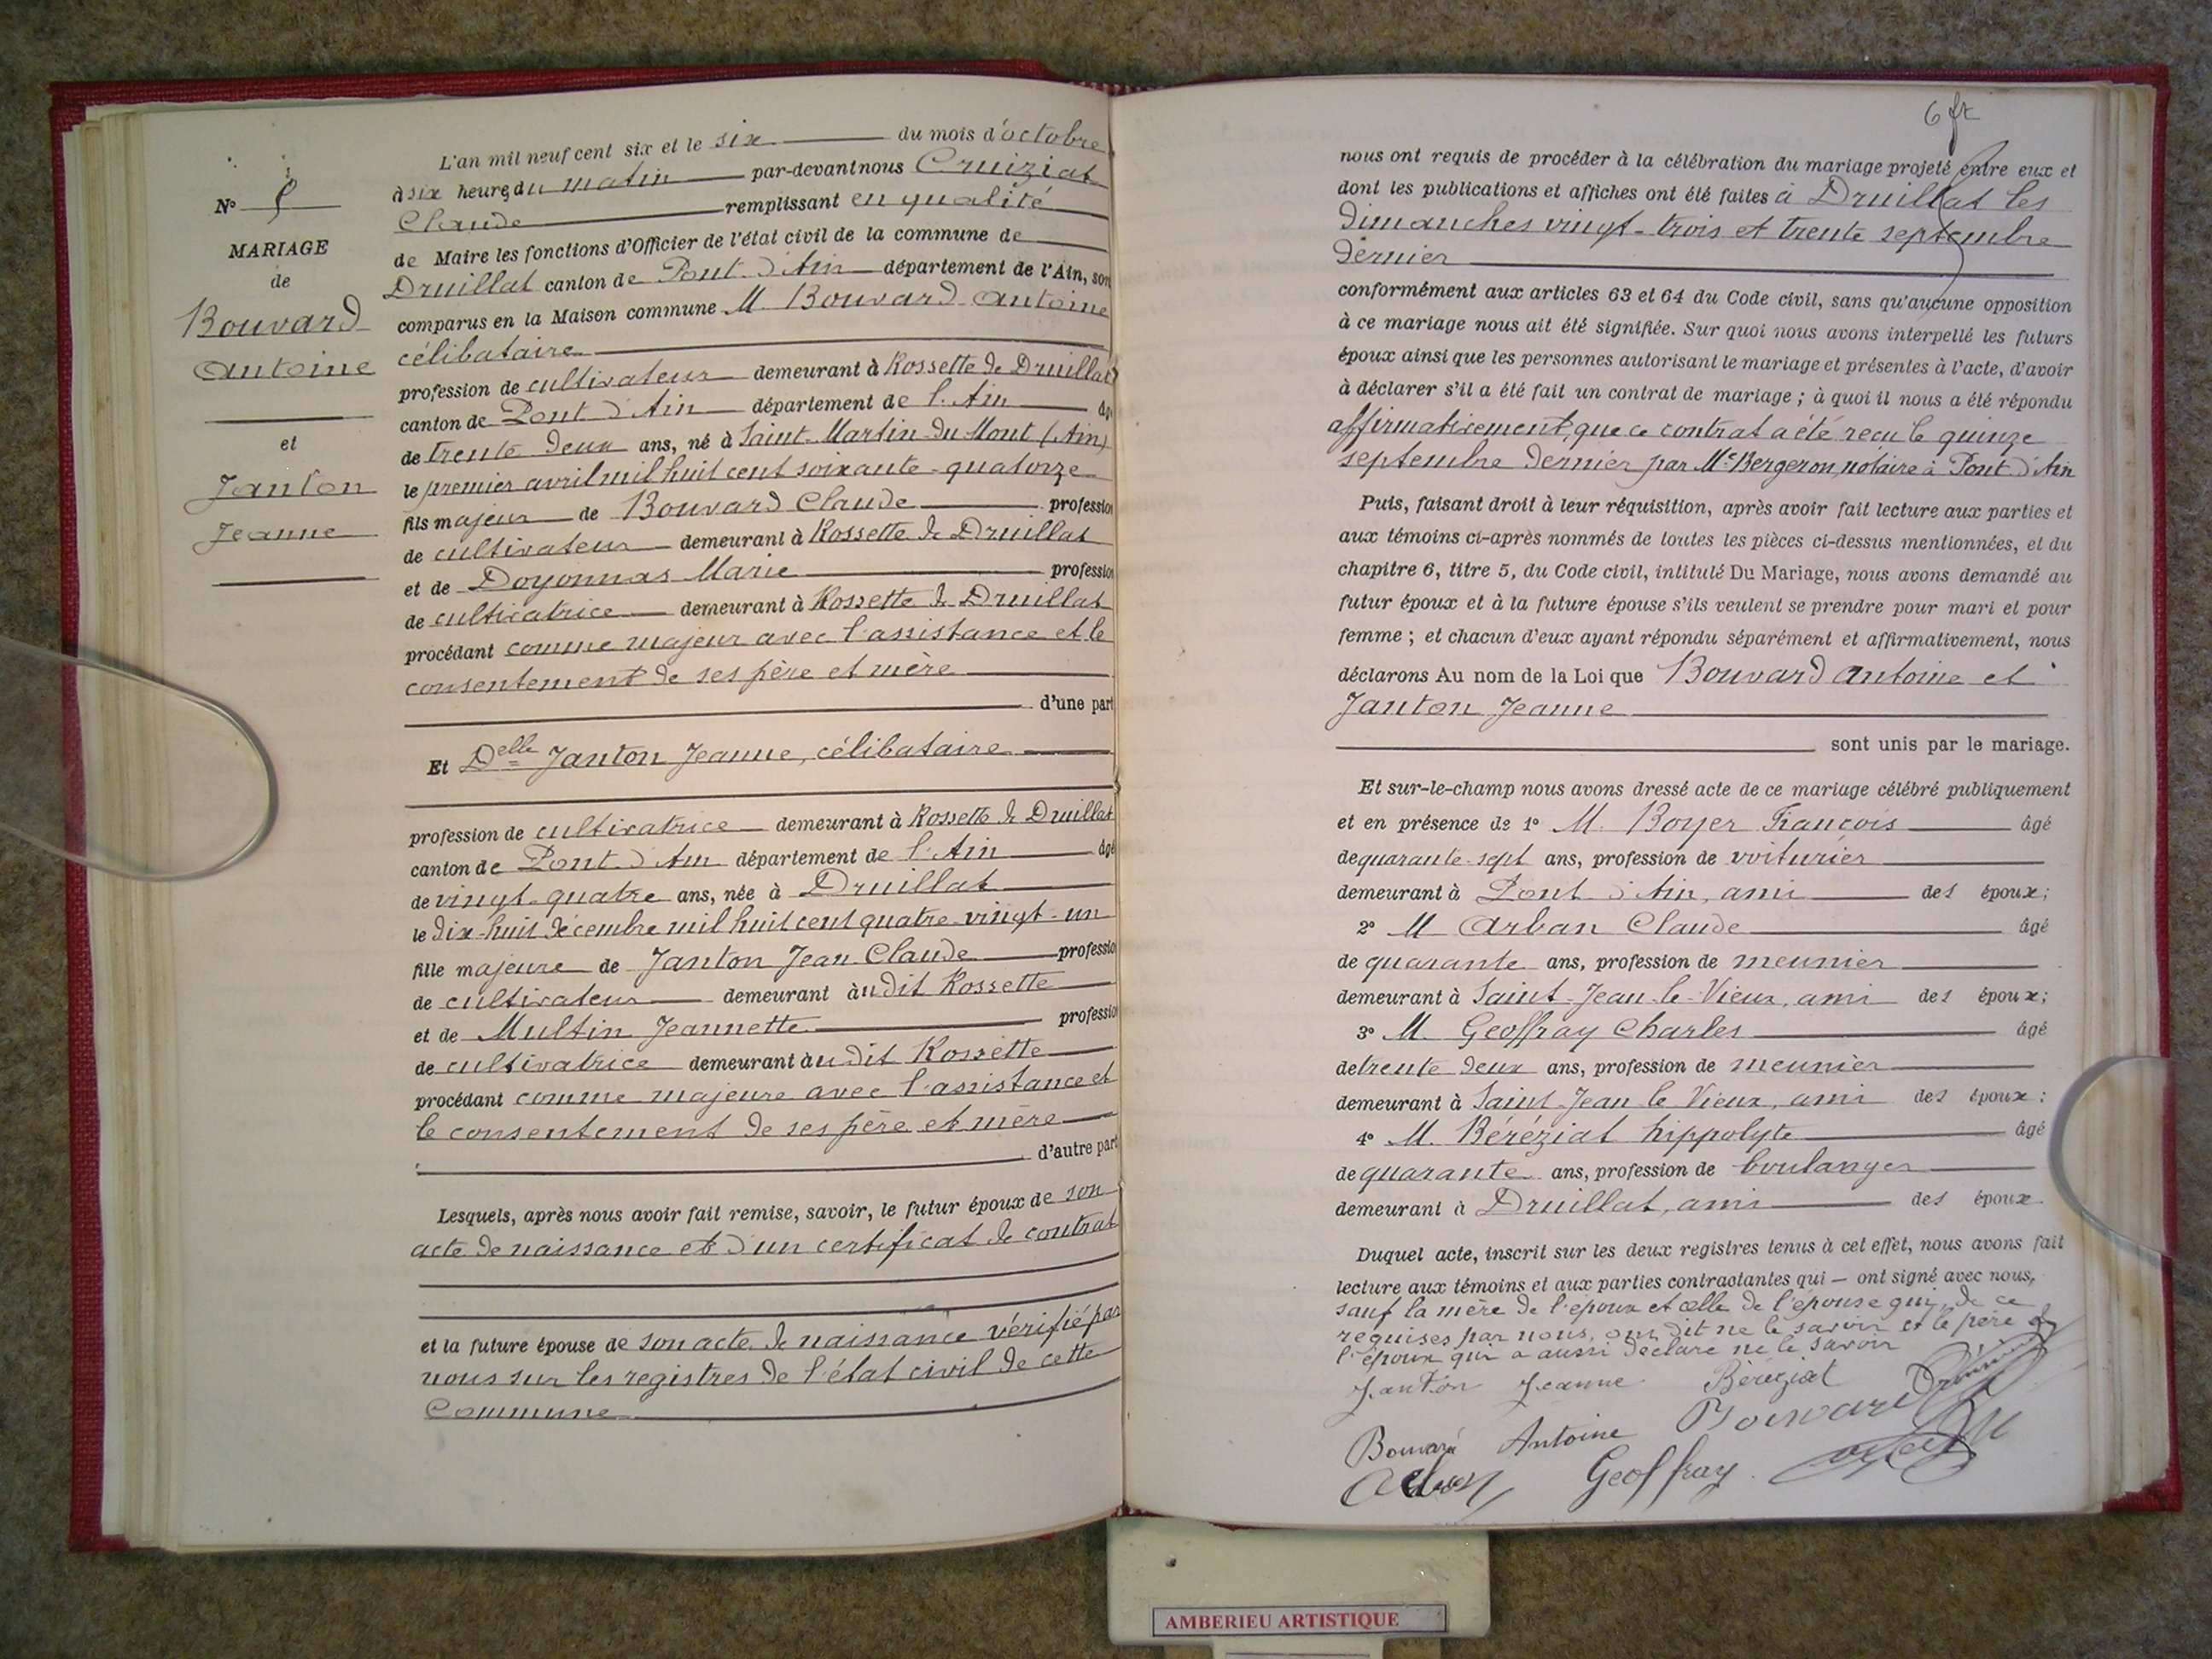 L'an mil neuf cent six et le six du mois d'octobre
à six heures du matin par-devant nous Cruiziat
Claude remplissant en qualité
de Maire les fonctions d'Officier de l'état civil de la commune de
Druillat canton de Pont d'Ain département de l'Ain, son
comparus en la Maison commune M. Bouvard Antoine
célibataire
profession de cultivateur demeurant à Rossette de Druillat
canton de Pont d'Ain département de l'Ain âgé
de trente deux ans, né à Saint-Martin-du-Mont (Ain)
le premier avril mil huit cent soixante-quatorze
fils majeur de Bouvard Claude profession
de cultivateur demeurant à Rossette de Druillat
et de Doyonnas Marie profession
de cultivatrice demeurant à Rossette de Druillat
procédant comme majeur avec l'assistance et le
consentement de ses père et mère
d'une part
Et Delle Janton Jeanne, célibataire
profession de cultivatrice demeurant à Rossette de Druillat
canton de Pont d'Ain département de l'Ain âgé
de vingt-quatre ans, née à Druillat
le dix-huit décembre mil huit cent quatre-vingt-un
fille majeure de Janton Jean Claude profession
de cultivateur demeurant àudit Rossette
et de Multin Jeannette profession
de cultivatrice demeurant àudit Rossette
procédant comme majeure avec l'assistance et
le consentement de ses père et mère
d'autre part
Lesquels, après nous avoir fait remise, savoir, le futur époux de son
acte de naissance et d'un certificat de contrat
et la future épouse de son acte de naissance vérifié par
nous sur les registres de l'état civil de cette
Commune
No
MARIAGE
de
Bouvard
Antoine
et
Janton
Jeanne
6
nous ont requis de procéder à la célébration du mariage projeté entre eux et
dont les publications et affiches ont été faites à Druillat les
dimanches vingt-trois et trente septembre
dernier
conformément aux articles 63 et 64 du Code civil, sans qu'aucune opposition
à ce mariage nous ait été signifiée. Sur quoi nous avons interpellé les futurs
époux ainsi que les personnes autorisant le mariage et présentes à l'acte, d'avoir
à déclarer s'il a été fait un contrat de mariage ; à quoi il nous a été répondu
affirmativement, que ce contrat a été reçu le quinze
septembre dernier par Me Bergeron, notaire à Pont d'Ain
Puis, faisant droit à leur réquisition, après avoir fait lecture aux parties et
aux témoins ci-après nommés de toutes les pièces ci-dessus mentionnées, et du
chapitre 6, titre 5, du Code civil, intitulé Du Mariage, nous avons demandé au
futur époux et à la future épouse s'ils veulent se prendre pour mari et pour
femme ; et chacun d'eux ayant répondu séparément et affirmativement, nous
déclarons Au nom de la Loi que Bouvard Antoine et
Janton Jeanne
sont unis par le mariage.
Et sur-le-champ nous avons dressé acte de ce mariage célébré publiquement
et en présence de 1o M. Boyer François âgé
de quarante-sept ans, profession de voiturier
demeurant à Pont d'Ain, ami des époux;
2o M Arban Claude âgé
de quarante ans, profession de meunier
demeurant à Saint-Jean-le-Vieux, ami des époux;
3o M. Geoffray Charles âgé
de trente deux ans, profession de meunier
demeurant à Saint-Jean le Vieux, ami des époux;
4o M. Béréziat hippolyte âgé
de quarante ans, profession de boulanger
demeurant à Druillat, ami des époux
Duquel acte, inscrit sur les deux registres tenus à cet effet, nous avons fait
lecture aux témoins et aux parties contractantes qui — ont signé avec nous,
sauf la mère de l'époux et celle de l'épouse qui, de ce
requises par nous, ont dit ne le savoir et le père de
l'époux qui a aussi déclaré ne le savoir
Janton Jeanne Béréziat
Bouvard Antoine Bouvard
Geoffray
AMBERIEU ARTISTIQUE